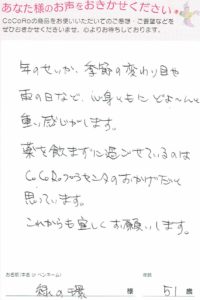 あなた様のお声をおきかせください
CoCoRoの商品をお使いいただいてのご感想・ご要望などを
ぜひおきかせくださいませ、心よりお待ちしております。
年のせいか、季節の変わり目や
雨の日など、心身ともに どよ〜んと
重い感じがします。
薬を飲まずに過ごせているのは
CoCoRoプラセンタのおかげだと
思っています。
これからも宜しくお願いします。
お名前(本名 or ペンネーム)
年齢
緑の環 様 51 歳